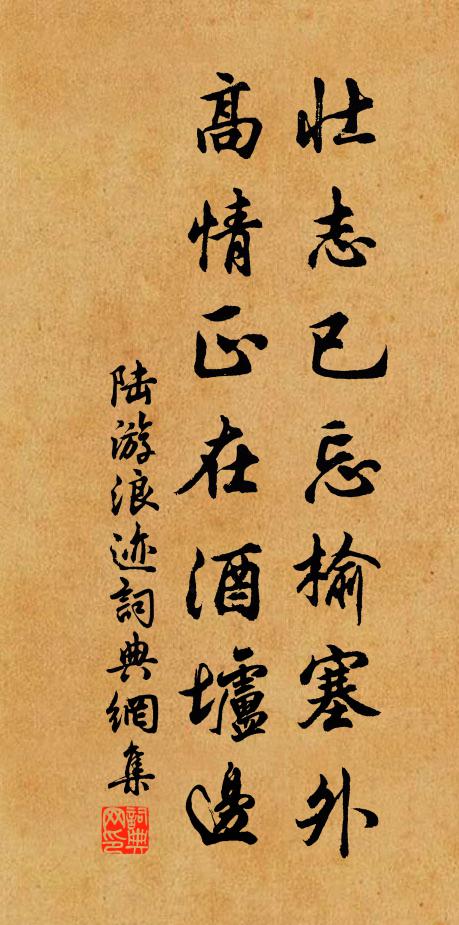 壮志已忘榆塞外
高情正在酒壚邊
陆游浪迹詞典網集
詞典网印